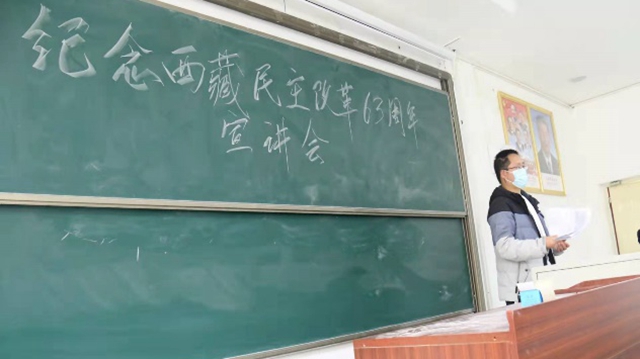 纪念西藏民主改革63周年
宣讲会